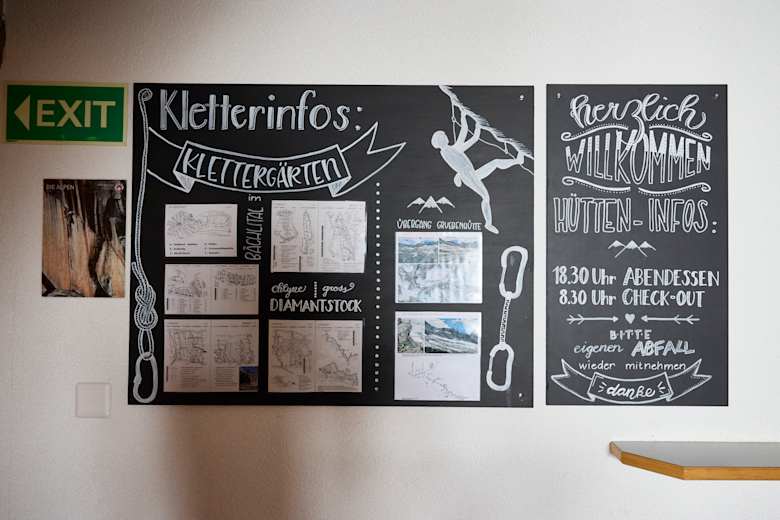 EXIT
DIE ALPEN
Kletterinfos:
KLETTERGÄRTEN
im
BÄCHLITAL
chlyne gross
DIAMANTSTOCK
ÜBERGANG GRUEBENHÜTTE
herzlich
WILLKOMMEN
HÜTTEN-INFOS:
18.30 Uhr ABENDESSEN
8.30 Uhr CHECK-OUT
BITTE
eigenen ABFALL
wieder mitnehmen
danke